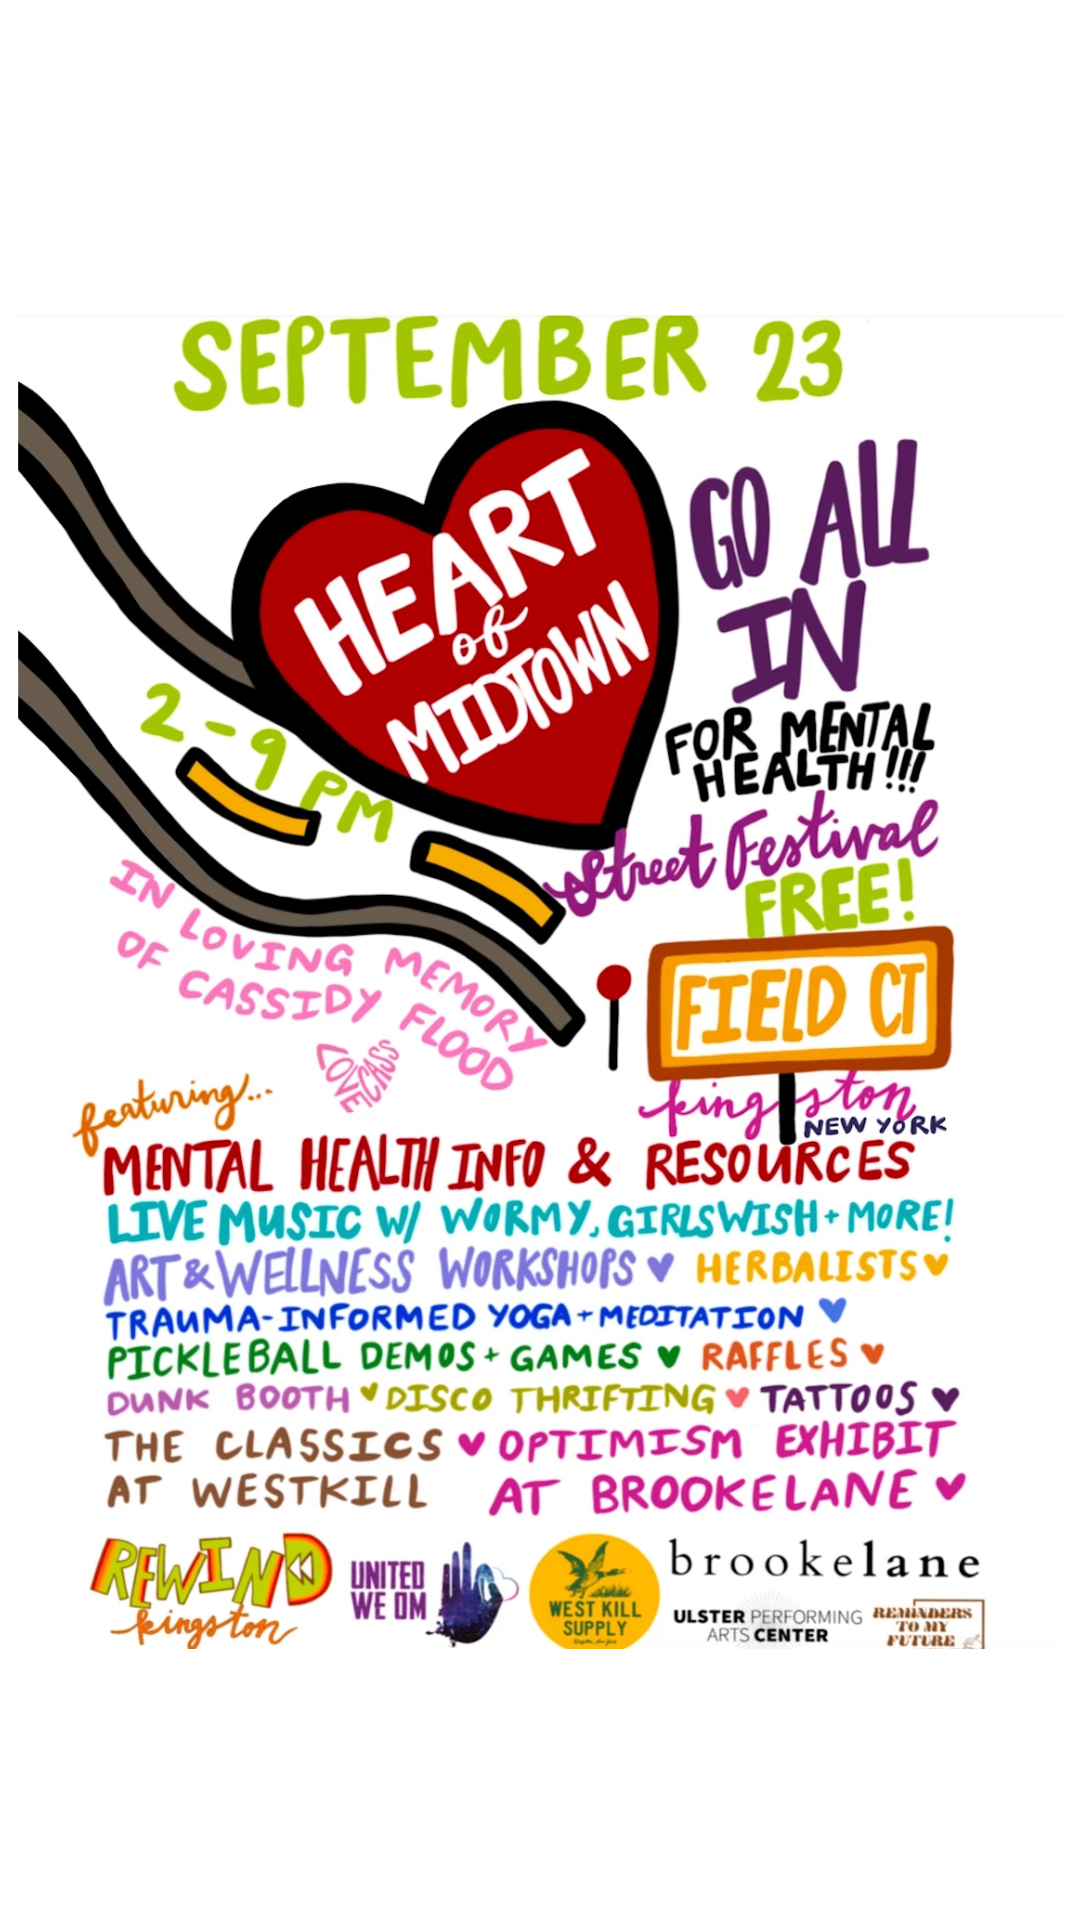 SEPTEMBER 23
HEART
of
MIDTOWN
GO ALL
IN
FOR MENTAL
HEALTH!!!
Street Festival
FREE!
2-9 PM
IN LOVING MEMORY
OF CASSIDY FLOOD
LOVE CASS
FIELD CT
kingston
NEW YORK
featuring...
MENTAL HEALTH INFO & RESOURCES
LIVE MUSIC W/ WORMY, GIRLSWISH + MORE!
ART & WELLNESS WORKSHOPS ♥ HERBALISTS ♥
TRAUMA-INFORMED YOGA + MEDITATION ♥
PICKLEBALL DEMOS + GAMES ♥ RAFFLES ♥
DUNK BOOTH ♥ DISCO THRIFTING ♥ TATTOOS ♥
THE CLASSICS ♥ OPTIMISM EXHIBIT
AT WESTKILL AT BROOKELANE ♥
REWIND
kingston
UNITED
WE OM
WEST KILL
SUPPLY
brookelane
ULSTER PERFORMING
ARTS CENTER
REMINDERS
TO MY
FUTURE